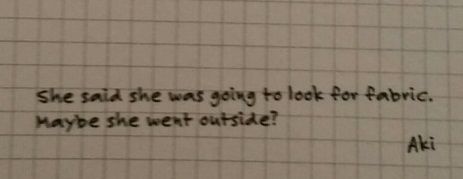 She said she was going to look for fabric.
Maybe she went outside?
Aki